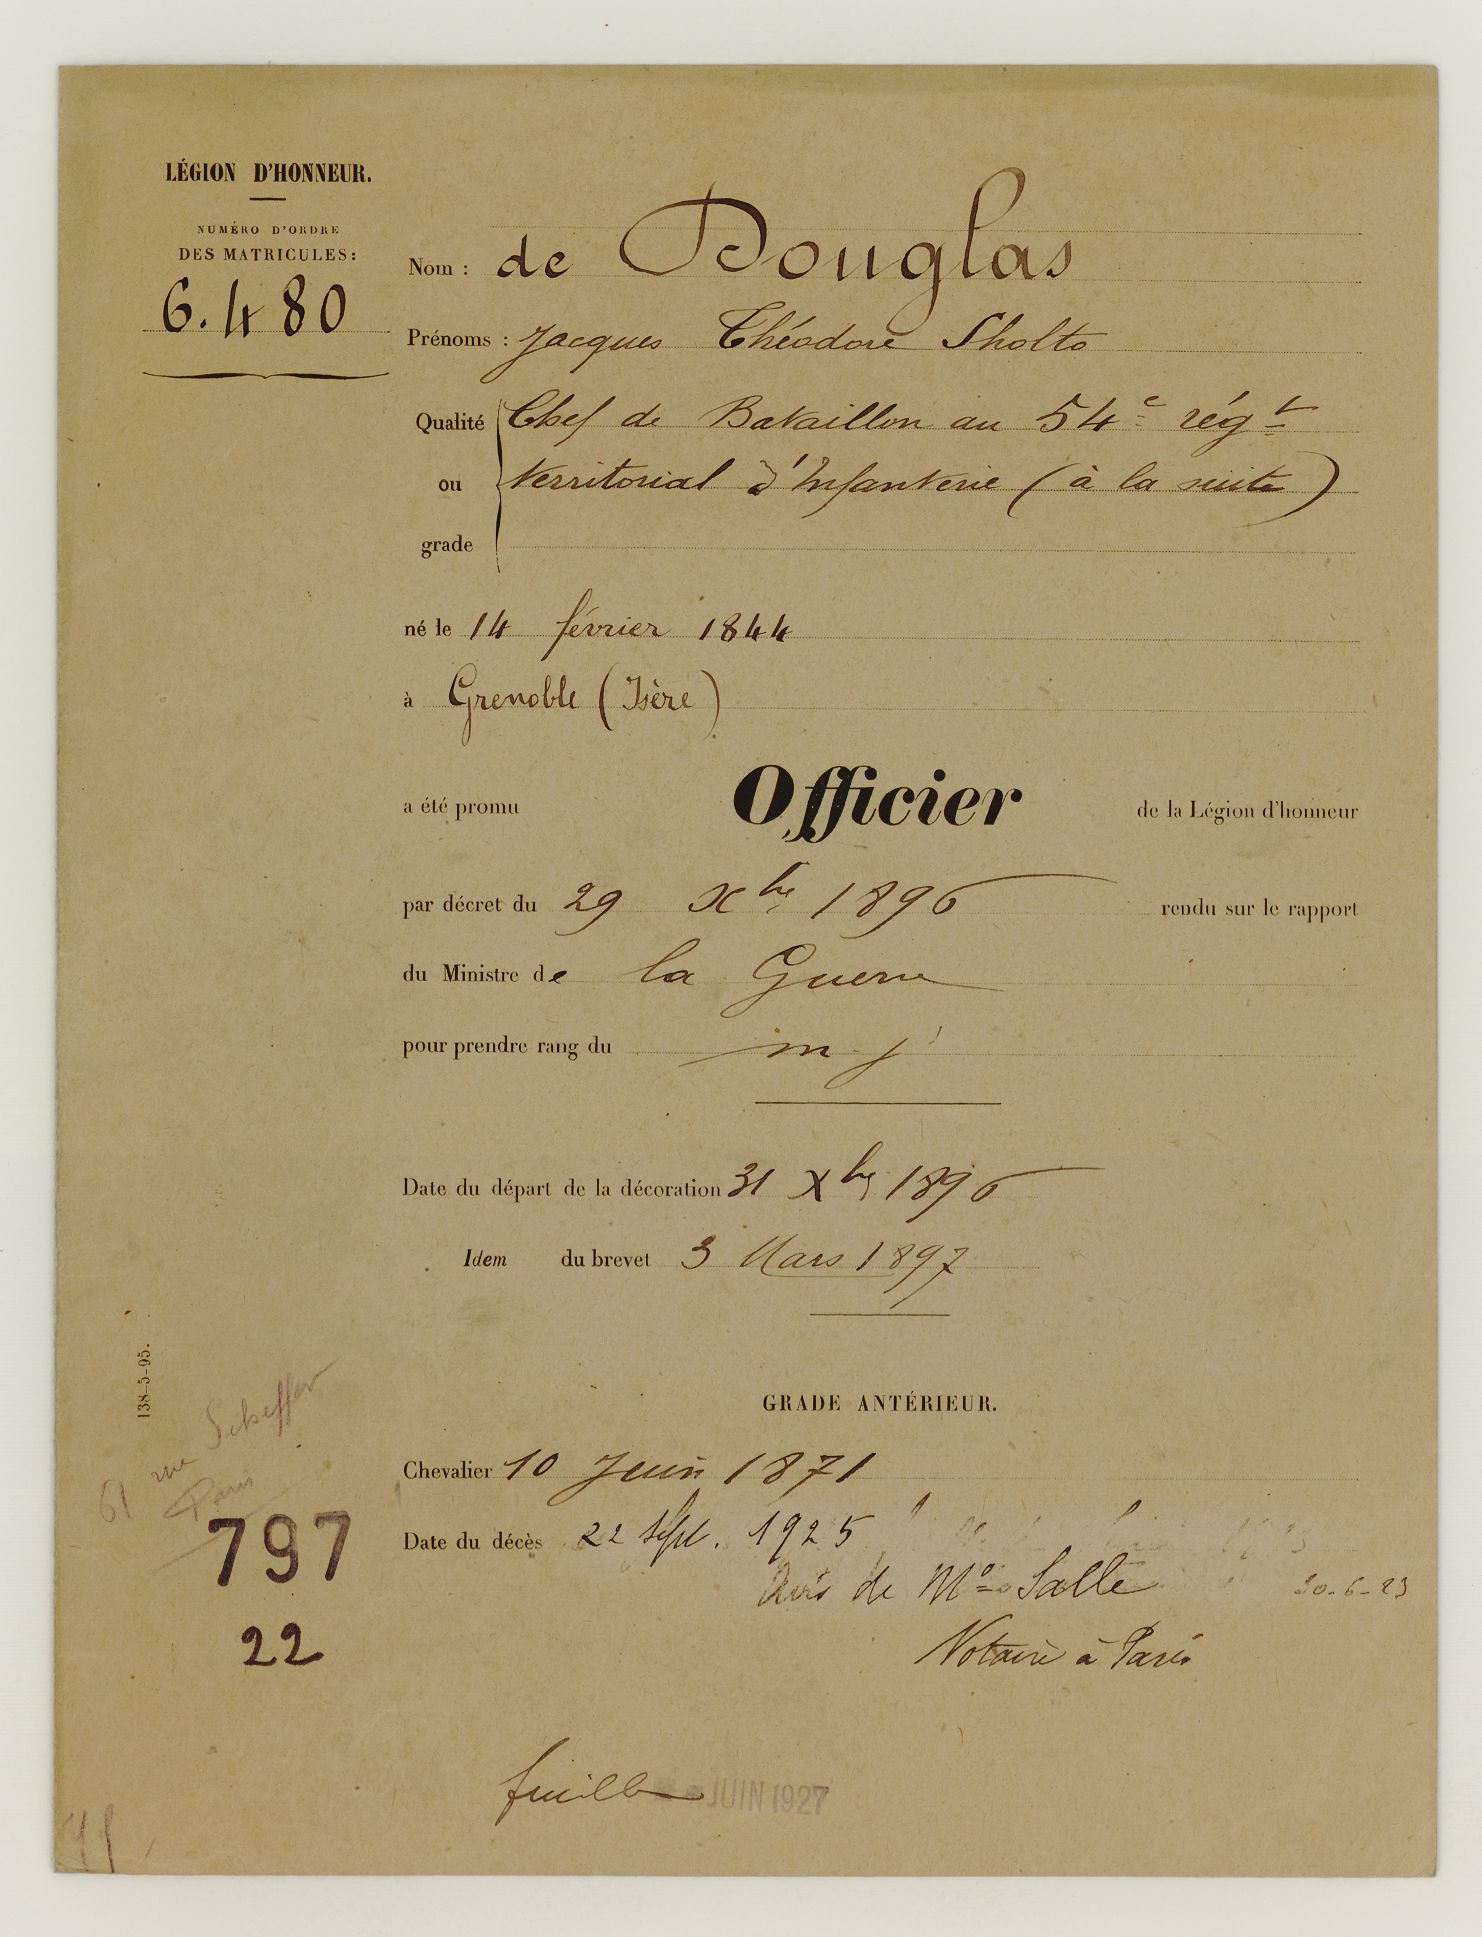 LÉGION D'HONNEUR.
NUMÉRO D'ORDRE
DES MATRICULES:
6.480
Nom : de Douglas
Prénoms : Jacques Théodore Sholto
Qualité Chef de Bataillon au 54e régt
ou territorial d'Infanterie (à la suite)
grade
né le 14 février 1844
à Grenoble (Isère)
a été promu Officier de la Légion d'honneur
par décret du 29 Xbre 1896 rendu sur le rapport
du Ministre de la Guerre
pour prendre rang du m. j
Date du départ de la décoration 31 Xbre 1896
Idem du brevet 3 Mars 1897
138-5-95.
GRADE ANTÉRIEUR.
61 rue Scheffer
Paris
Chevalier 10 Juin 1871
797
Date du décès 22 Sept. 1925
Avis de Me Salle
Notaire à Paris
22
JUIN 1927